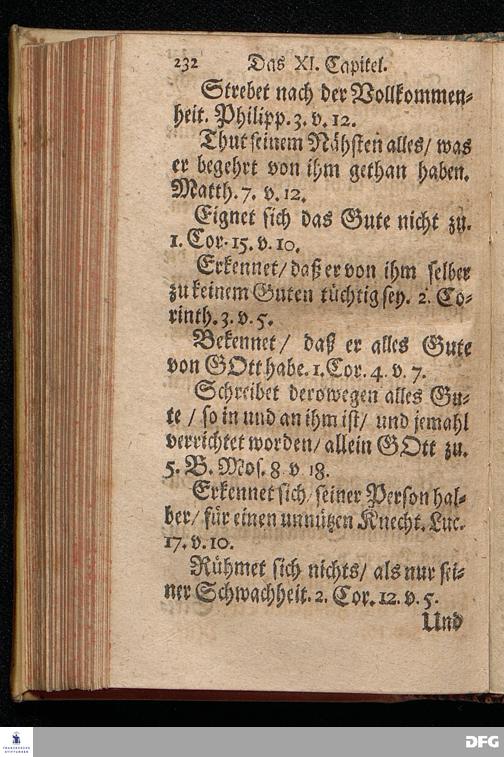 232 Das XI. Capitel.
Strebet nach der Vollkommen-
heit. Philipp. 3. v. 12.
Thut seinem Nähsten alles/ was
er begehrt von ihm gethan haben.
Matth. 7. v. 12.
Eignet sich das Gute nicht zu.
1. Cor. 15. v. 10.
Erkennet/ daß er von ihm selber
zu keinem Guten tüchtig sey. 2. Co-
rinth. 3. v. 5.
Bekennet/ daß er alles Gute
von GOtt habe. 1. Cor. 4. v. 7.
Schreibet derowegen alles Gu-
te / so in und an ihm ist/ und jemahl
verrichtet worden/ allein GOtt zu.
5. B. Mos. 8. v. 18.
Erkennet sich/ seiner Person hal-
ber/ für einen unnützen Knecht. Luc.
17. v. 10.
Rühmet sich nichts/ als nur sei-
ner Schwachheit. 2. Cor. 12. v. 5.
Und
FRANCKESCHE
STIFTUNGEN
DFG